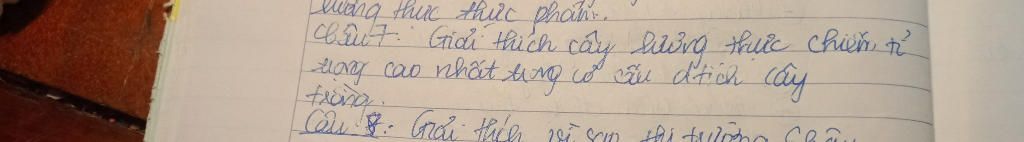 lương thực thực phẩm.
Câu 7: Giải thích cây lương thực chiếm tỉ
trọng cao nhất trong cơ cấu d tích cây
trồng.
Câu 8: Giải thích vì sao thị trường Châu